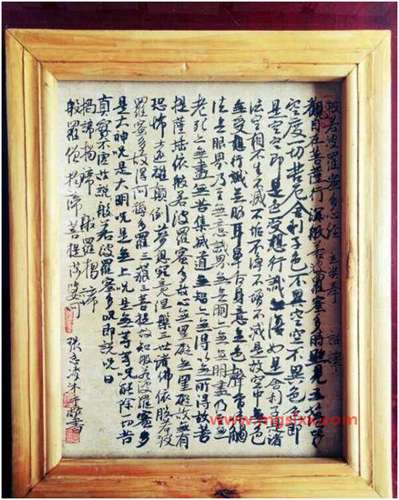 般若波羅蜜多心經 玄奘奉 詔譯
觀自在菩薩行深般若波羅蜜多時照見五蘊皆
空度一切苦厄舍利子色不異空空不異色色即
是空空即是色受想行識亦復如是舍利子是諸
法空相不生不滅不垢不淨不增不減是故空中無色
無受想行識無眼耳鼻舌身意無色聲香味觸
法無眼界乃至無意識界無無明亦無無明盡乃至無
老死亦無盡無苦集滅道無智亦無得以無所得故菩
提薩埵依般若波羅蜜多故心無罣礙無罣礙故無有
恐怖遠離顛倒夢想究竟涅槃三世諸佛依般若波
羅蜜多故得阿耨多羅三藐三菩提故知般若波羅蜜多
是大神咒是大明咒是無上咒是無等等咒能除一切苦
真實不虛故說般若波羅蜜多咒即說咒曰
揭諦揭諦 般羅揭諦
般羅僧揭諦 菩提薩婆訶